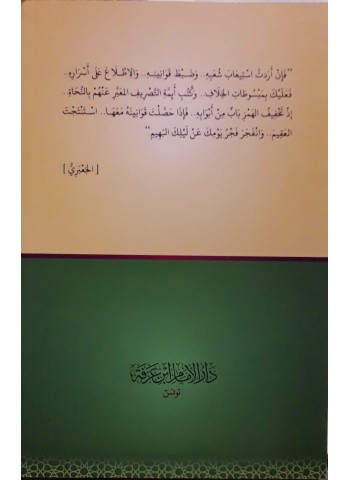 "فَإِنْ أَرَدتَّ اسْتِيعَابَ شُعَبِهِ.. وَضَبْطَ قَوَانِينِهِ.. وَالاِطِّلَاعَ عَلَى أَسْرَارِهِ..
فَعَلَيْكَ بِمَبْسُوطَاتِ الخِلَافِ.. وَكُتُبِ أَيِمَّةِ التَّصْرِيفِ المُعَبَّرِ عَنْهُمْ بِالنُّحَاةِ..
إِذْ تَخْفِيفُ الهَمْزِ بَابٌ مِنْ أَبْوَابِهِ.. فَإِذَا حَصَّلْتَ قَوَانِينَهُ مَعَهَا.. اسْتَنْتَجْتَ
العَقِيمَ.. وَانْفَجَرَ فَجْرُ يَوْمِكَ عَنْ لَيْلِكَ البَهِيمِ"
[ الجَعْبَرِيُّ ]
دار الإمام ابن عرفة
تونس